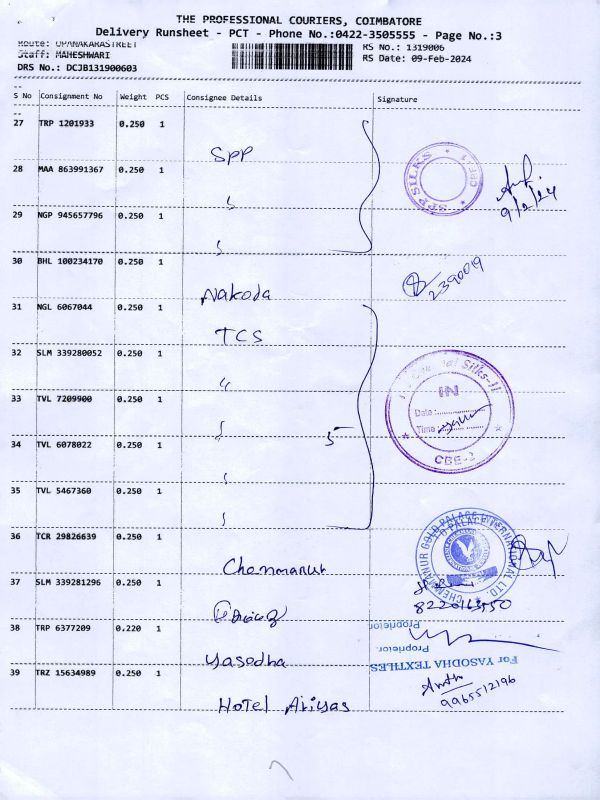 THE PROFESSIONAL COURIERS, COIMBATORE
Delivery Runsheet - PCT - Phone No.:0422-3505555 - Page No.:3
Route: OPANAKARASTREET
Staff: MAHESHWARI
DRS No.: DCJB131900603
RS No.: 1319006
RS Date: 09-Feb-2024
S No Consignment No Weight PCS Consignee Details Signature
27 TRP 1201933 0.250 1
SPP
SPP SILKS
CBE-1
9/2/24
28 MAA 863991367 0.250 1
29 NGP 945657796 0.250 1
30 BHL 100234170 0.250 1
Nakoda
2390019
31 NGL 6067044 0.250 1
TCS
32 SLM 339280052 0.250 1
"
33 TVL 7209900 0.250 1
5
Silks-II
IN
Date:
Time
CBE-2
34 TVL 6078022 0.250 1
35 TVL 5467360 0.250 1
36 TCR 29826639 0.250 1
Chemmanur
CHEMMANUR GOLD PALACE INTERNATIONAL LTD.
37 SLM 339281296 0.250 1
38 TRP 6377209 0.220 1
Yasodha
For YASODHA TEXTILES
Proprietor.
Proprietor
39 TRZ 15634989 0.250 1
Hotel Ariyas
9965512196